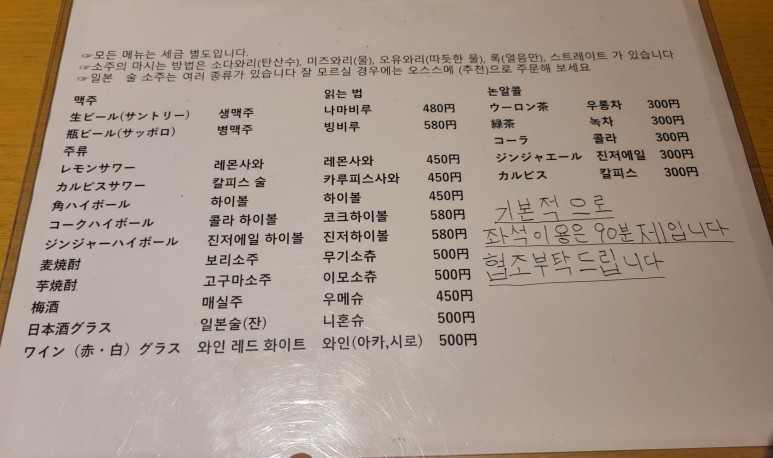 ☞모든 메뉴는 세금 별도입니다.
☞소주의 마시는 방법은 소다와리(탄산수), 미즈와리(물), 오유와리(따듯한 물), 록(얼음만), 스트레이트 가 있습니다
☞일본 술 소주는 여러 종류가 있습니다 잘 모르실 경우에는 오스스메 (추천)으로 주문해 보세요
맥주 읽는 법
生ビール(サントリー) 생맥주 나마비루 480円
瓶ビール(サッポロ) 병맥주 빙비루 580円
주류
レモンサワー 레몬사와 레몬사와 450円
カルピスサワー 칼피스 술 카루피스사와 450円
角ハイボール 하이볼 하이볼 450円
コークハイボール 콜라 하이볼 코크하이볼 580円
ジンジャーハイボール 진저에일 하이볼 진저하이볼 580円
麦焼酎 보리소주 무기소츄 500円
芋焼酎 고구마소주 이모소츄 500円
梅酒 매실주 우메슈 450円
日本酒グラス 일본술(잔) 니혼슈 500円
ワイン（赤・白）グラス 와인 레드 화이트 와인(아카,시로) 500円
논알콜
ウーロン茶 우롱차 300円
緑茶 녹차 300円
コーラ 콜라 300円
ジンジャエール 진저에일 300円
カルピス 칼피스 300円
기본적으로
좌석이용은 90분제입니다
협조부탁드립니다